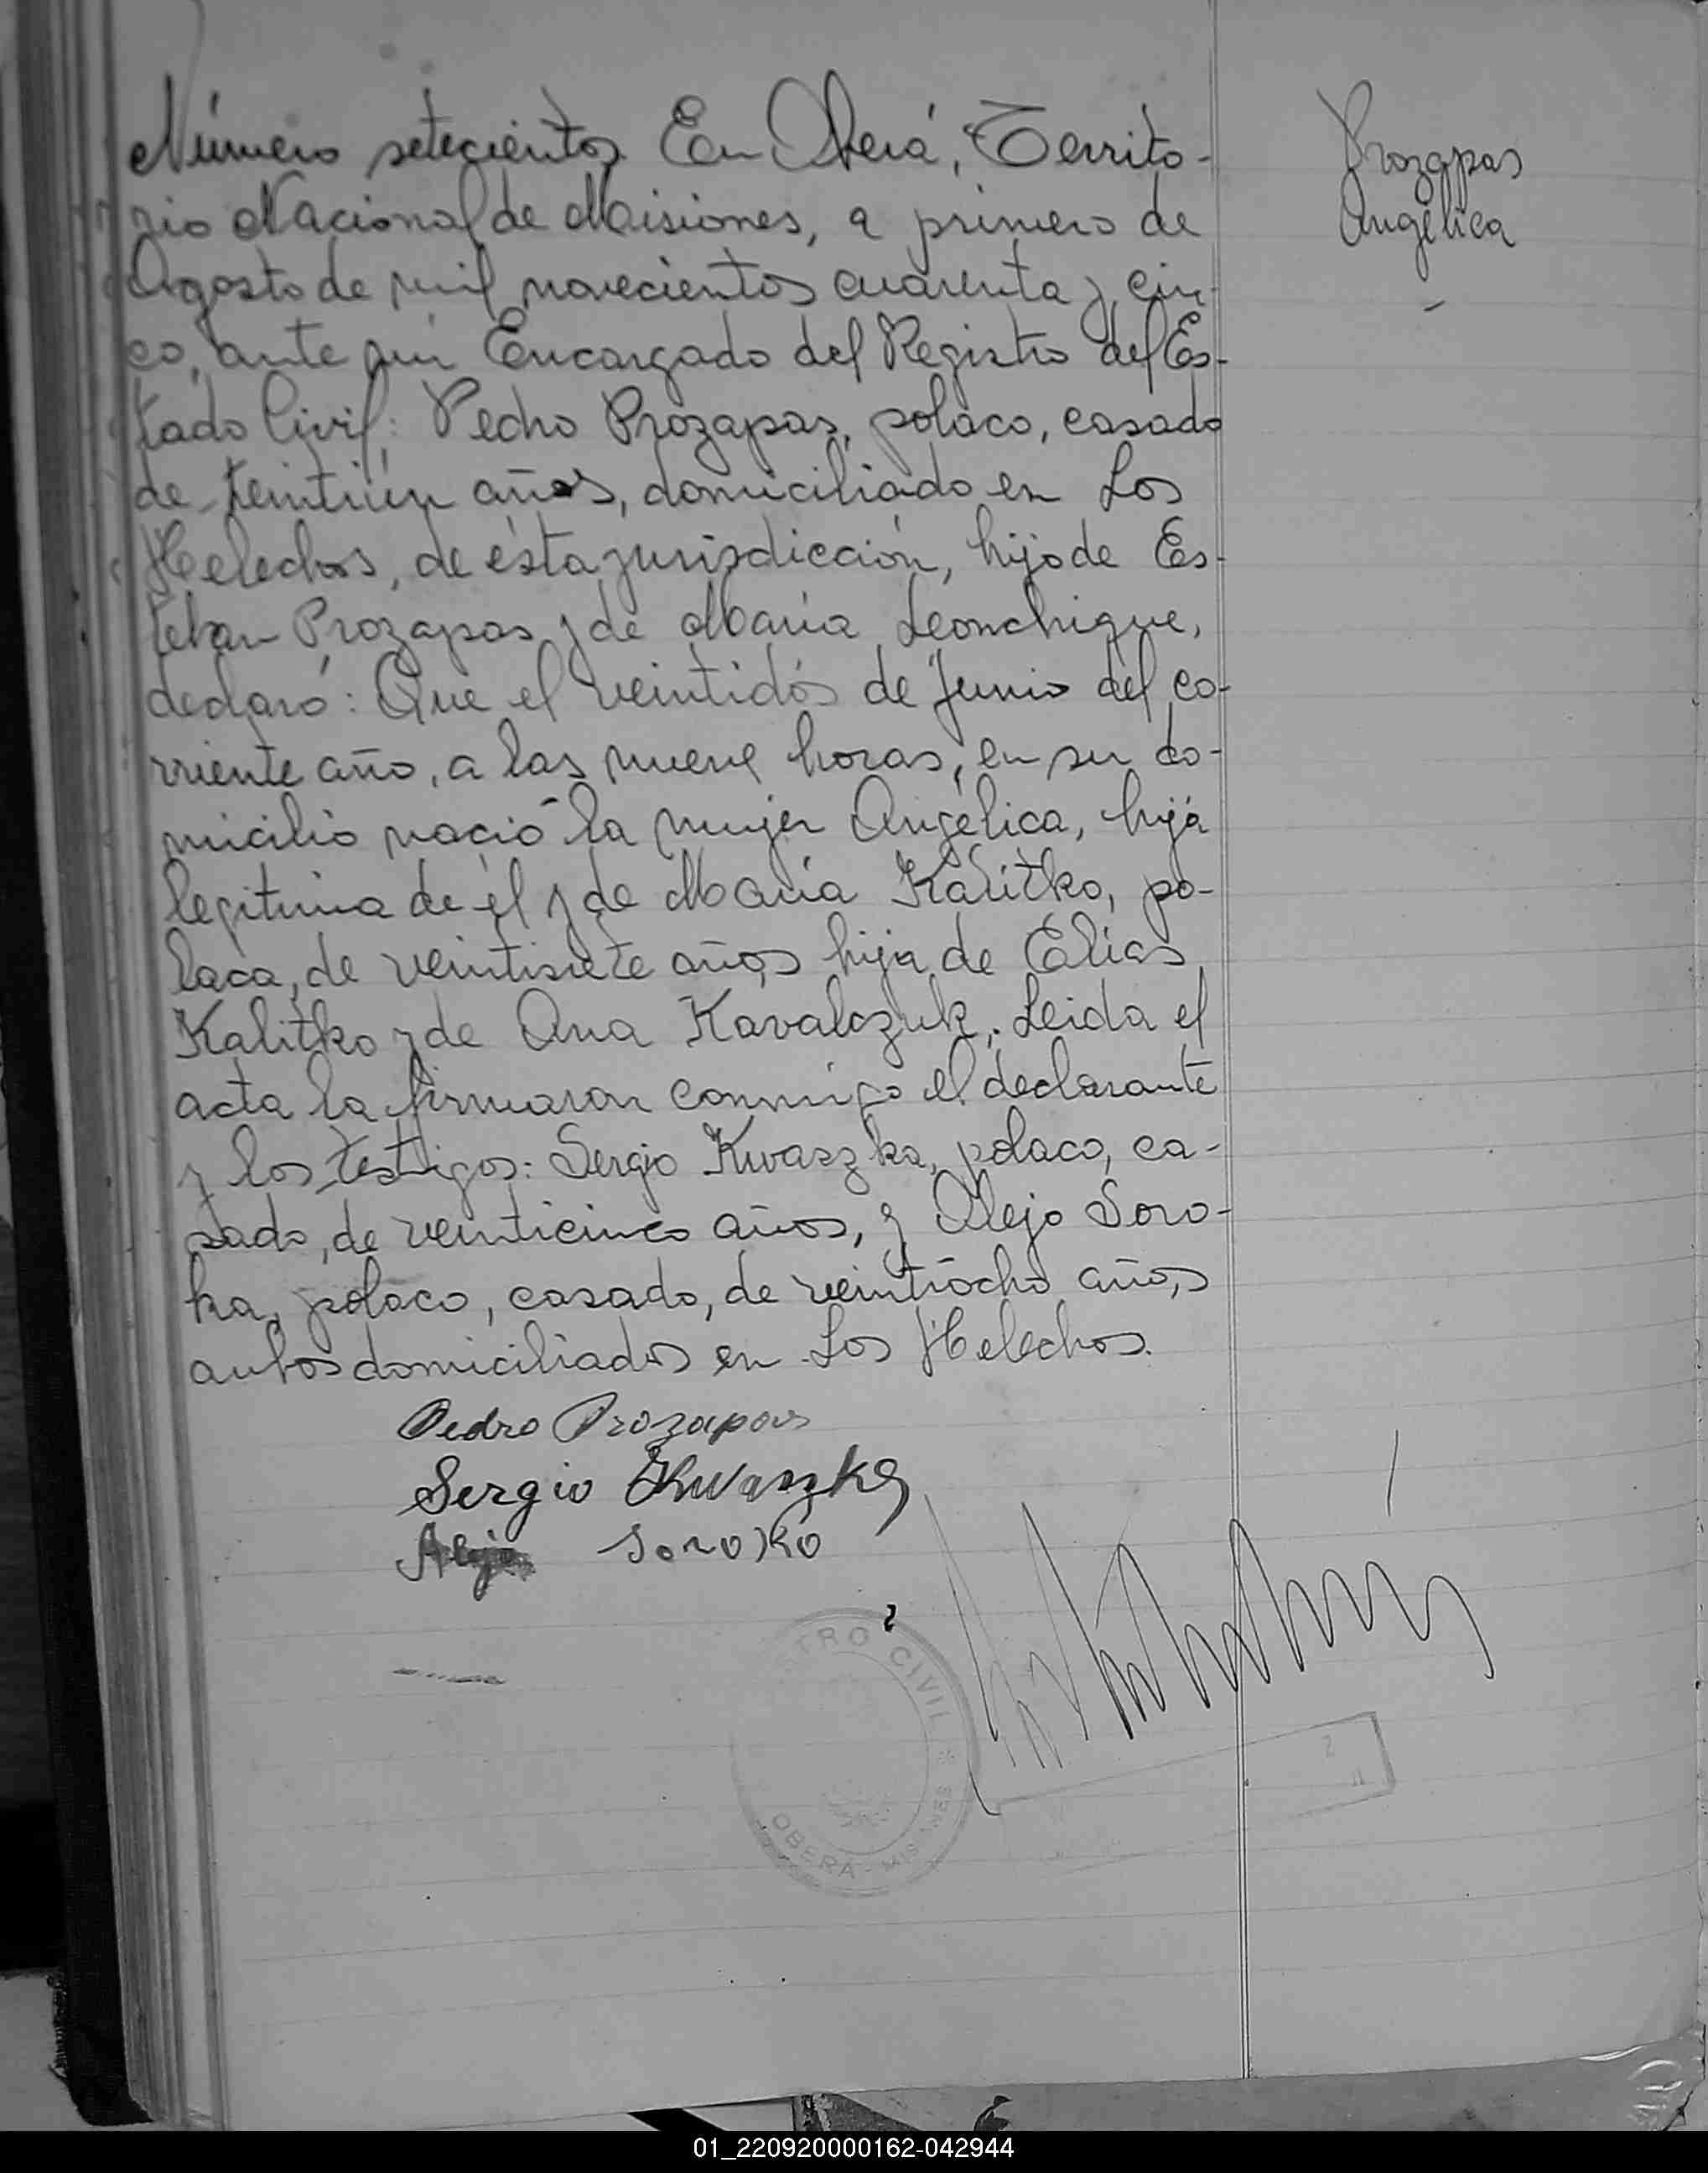 Número setecientos. En Oberá, Territo-
rio Nacional de Misiones, a primero de
Agosto de mil novecientos cuarenta y cin-
co, ante mí Encargado del Registro del Es-
tado Civil: Pedro Prozapas, polaco, casado
de treintiún años, domiciliado en Los
Helechos, de ésta jurisdicción, hijo de Es-
teban Prozapas y de María Leonchique,
declaró: Que el veintidós de Junio del co-
rriente año, a las nueve horas, en su do-
micilio nació la mujer Angélica, hija
legitima de él y de María Kalitko, po-
laca, de veintisiete años hija de Elías
Kalitko y de Ana Kavalczuk. Leida el
acta la firmaron conmigo el declarante
y los testigos: Sergio Kwaszka, polaco, ca-
sado, de veinticinco años, y Alejo Soro-
ka, polaco, casado, de veintiocho años
ambos domiciliados en Los Helechos.
Prozapas
Angélica
Pedro Prozapas
Sergio Kwaszka
Alejo Soroko
REGISTRO CIVIL
OBERÁ - MISIONES
01_220920000162-042944